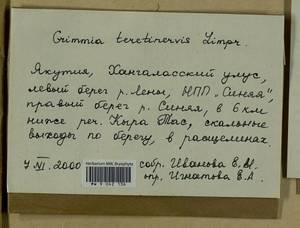 Grimmia teretinervis Limpr.
Якутия, Хангаласский улус,
левый берег р. Лены, НПП "Синяя",
правый берег р. Синяя, в 6 км
ниже реч. Кыра Тас, скальные
выходы по берегу, в расщелинах.
7 VI. 2000 собр. Иванова Е.И.
Herbarium MW, Bryophyta
MW 9 042 136
опр. Игнатова Е.А.